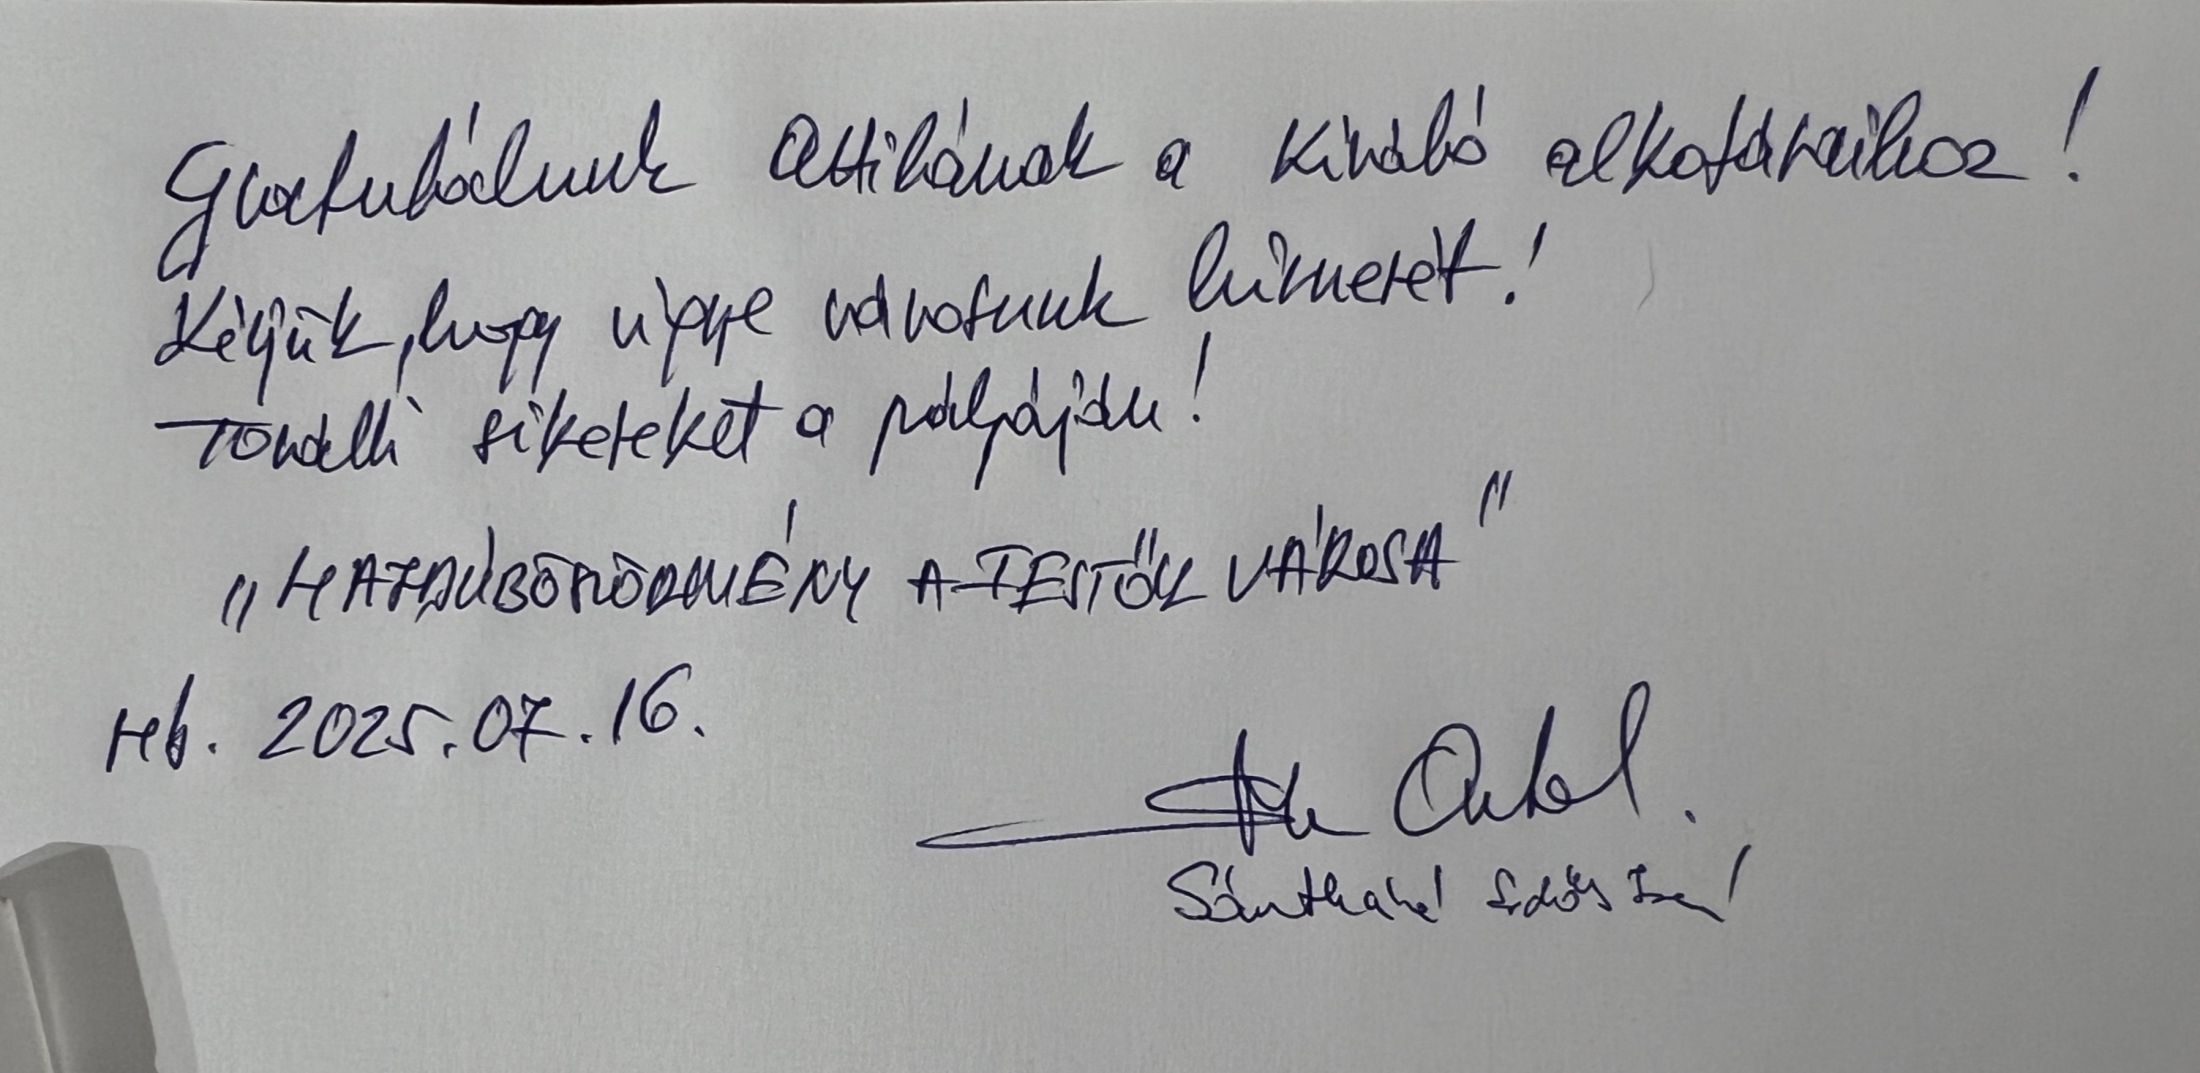 Gratulálunk Attilának a kiváló alkotásaihoz!
Kérjük, hogy vigye városunk hírnevét!
További sikereket a pályáján!
„HAJDÚBÖSZÖRMÉNY A FESTŐK VÁROSA”
Hb. 2025.07.16.
Antal.